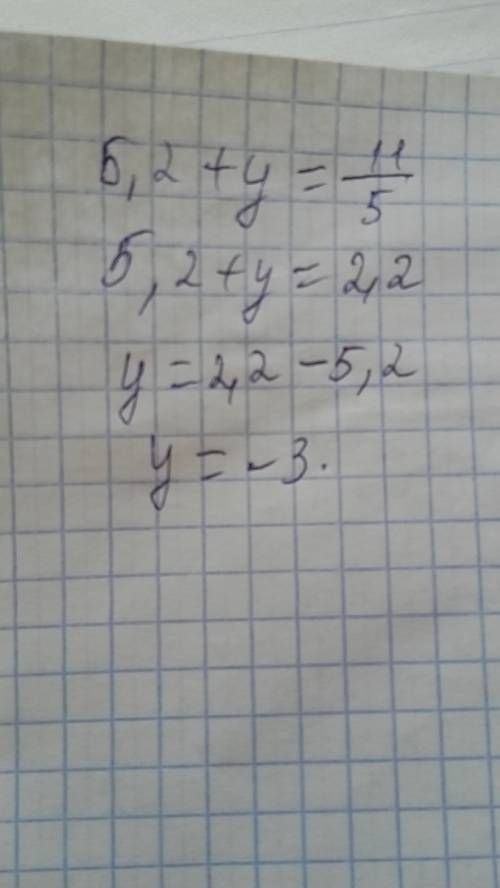 5,2 + y = 11/5
5,2 + y = 2,2
y = 2,2 - 5,2
y = -3.